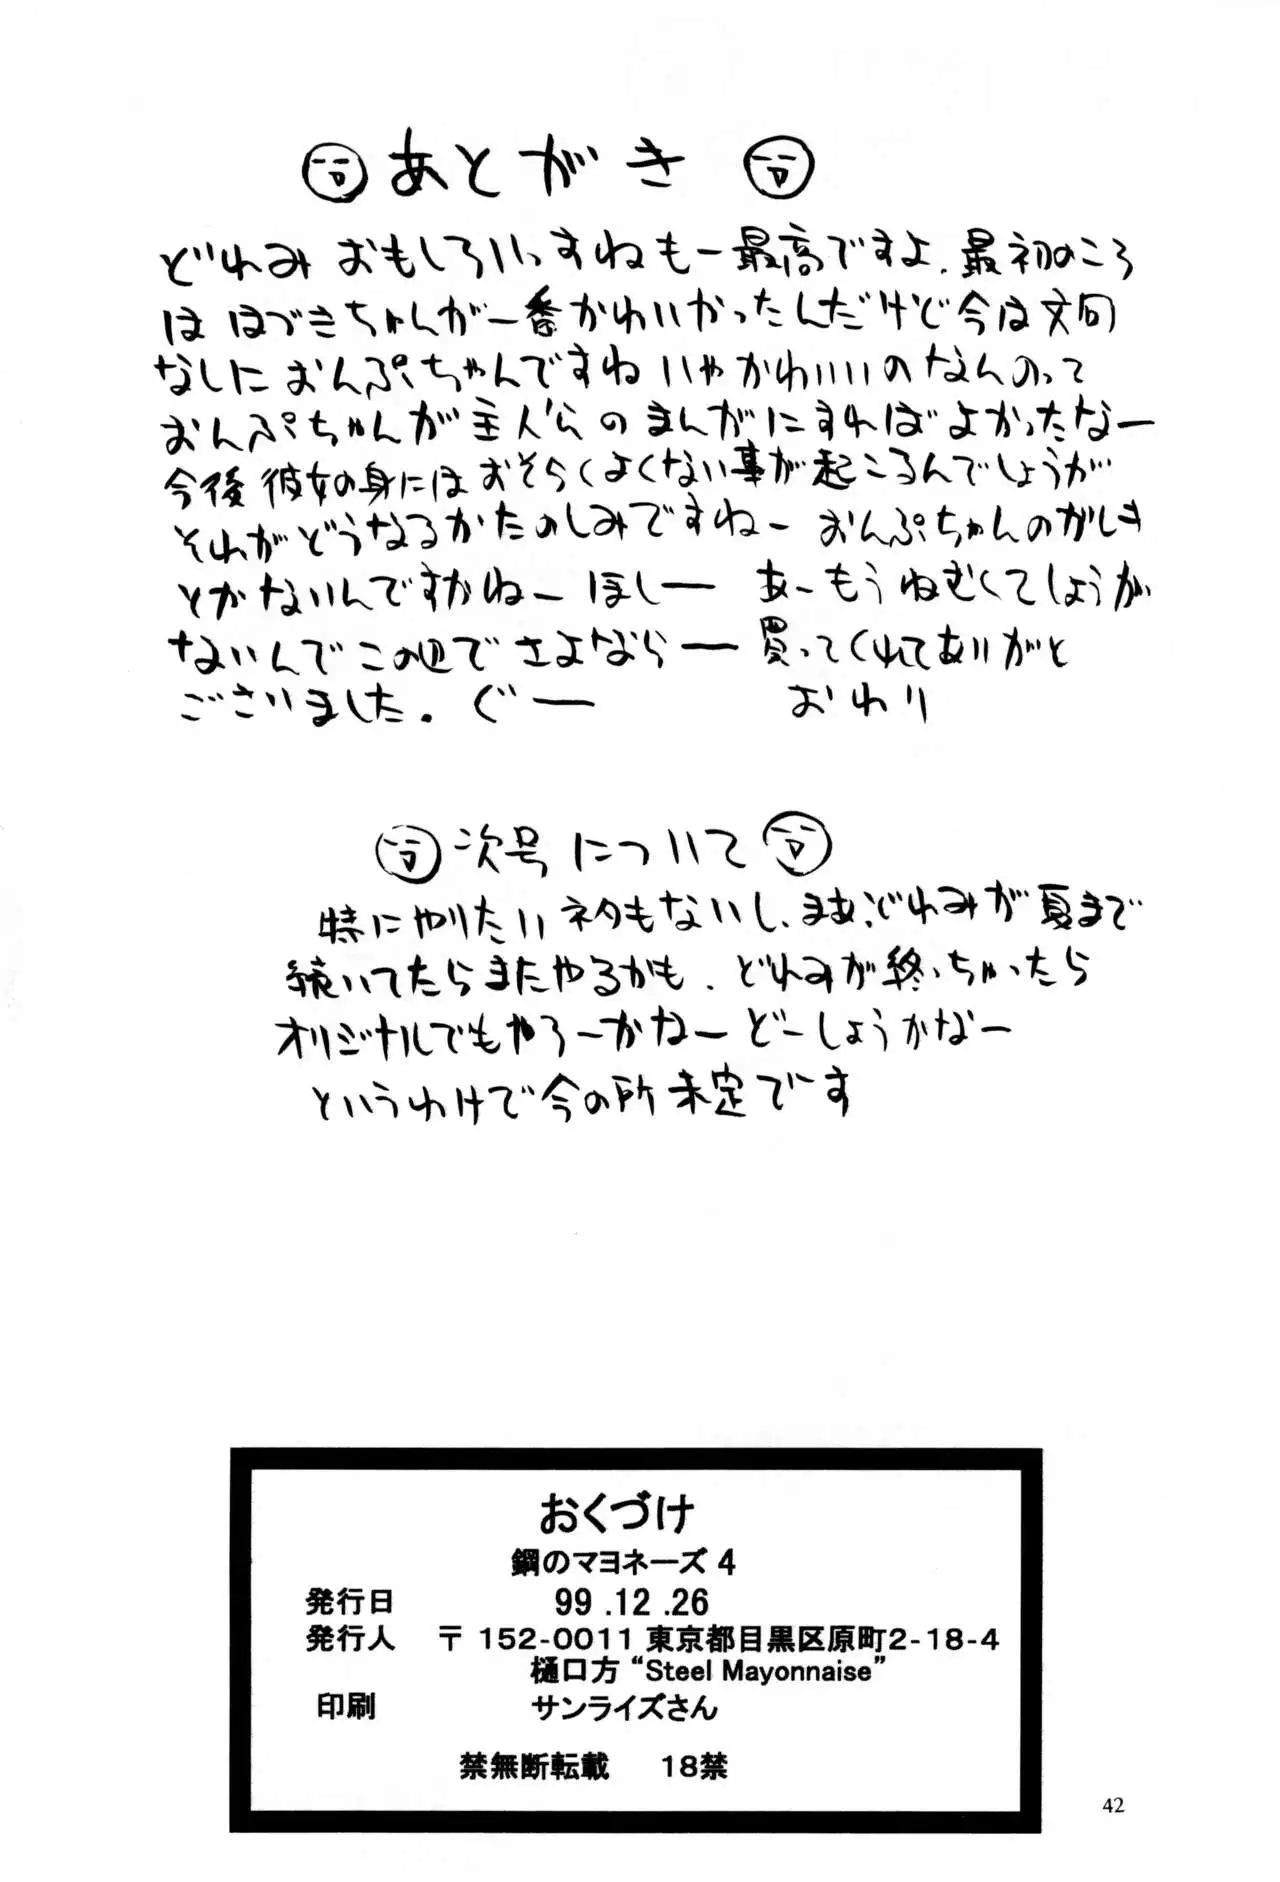 あとがき
どれみ おもしろいっすねもー最高ですよ.最初のころ
は はづきちゃんが一番かわいかったんだけど今は文句
なしにおんぷちゃんですね いやかわいいのなんのって
おんぷちゃんが主人公のまんがにすればよかったなー
今後彼女の身にはおそらくよくない事が起こるんでしょうが
それがどうなるかたのしみですねー おんぷちゃんのがしき
とかないんですかねー ほしー あーもうねむくてしょうが
ないんでこの辺でさよならー 買ってくれてありがと
ございました. ぐー おわり
次号について
特にやりたいネタもないし、まあ、どれみが夏まで
続いてたらまたやるかも. どれみが終っちゃったら
オリジナルでもやろーかなー どーしょうかなー
というわけで今の所未定です
おくづけ
鋼のマヨネーズ 4
発行日 99 .12 .26
発行人 〒 152-0011 東京都目黒区原町2-18-4
樋口方 “Steel Mayonnaise”
印刷 サンライズさん
禁無断転載 18禁
42